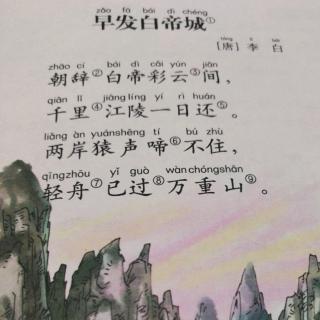 zǎo fā bái dì chéng
早发白帝城①
táng lǐ bái
[唐] 李 白
zhāo cí bái dì cǎi yún jiān
朝辞②白帝彩云③间，
qiān lǐ jiāng líng yí rì huán
千里④江陵一日还⑤。
liǎng àn yuán shēng tí bú zhù
两岸猿声啼⑥不住，
qīng zhōu yǐ guò wàn chóng shān
轻舟⑦已过⑧万重山⑨。